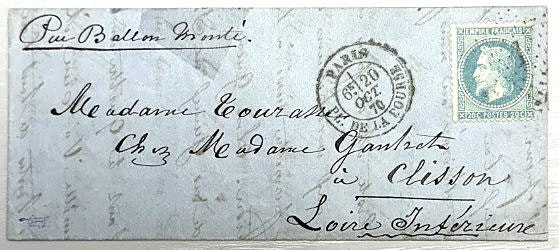 Par Ballon Monté.
PARIS
6E/20
OCT.
70
PL. DE LA BOURSE
EMPIRE FRANÇAIS
20C POSTES 20C
Madame
Chez Madame
à Clisson
Loire Inférieure